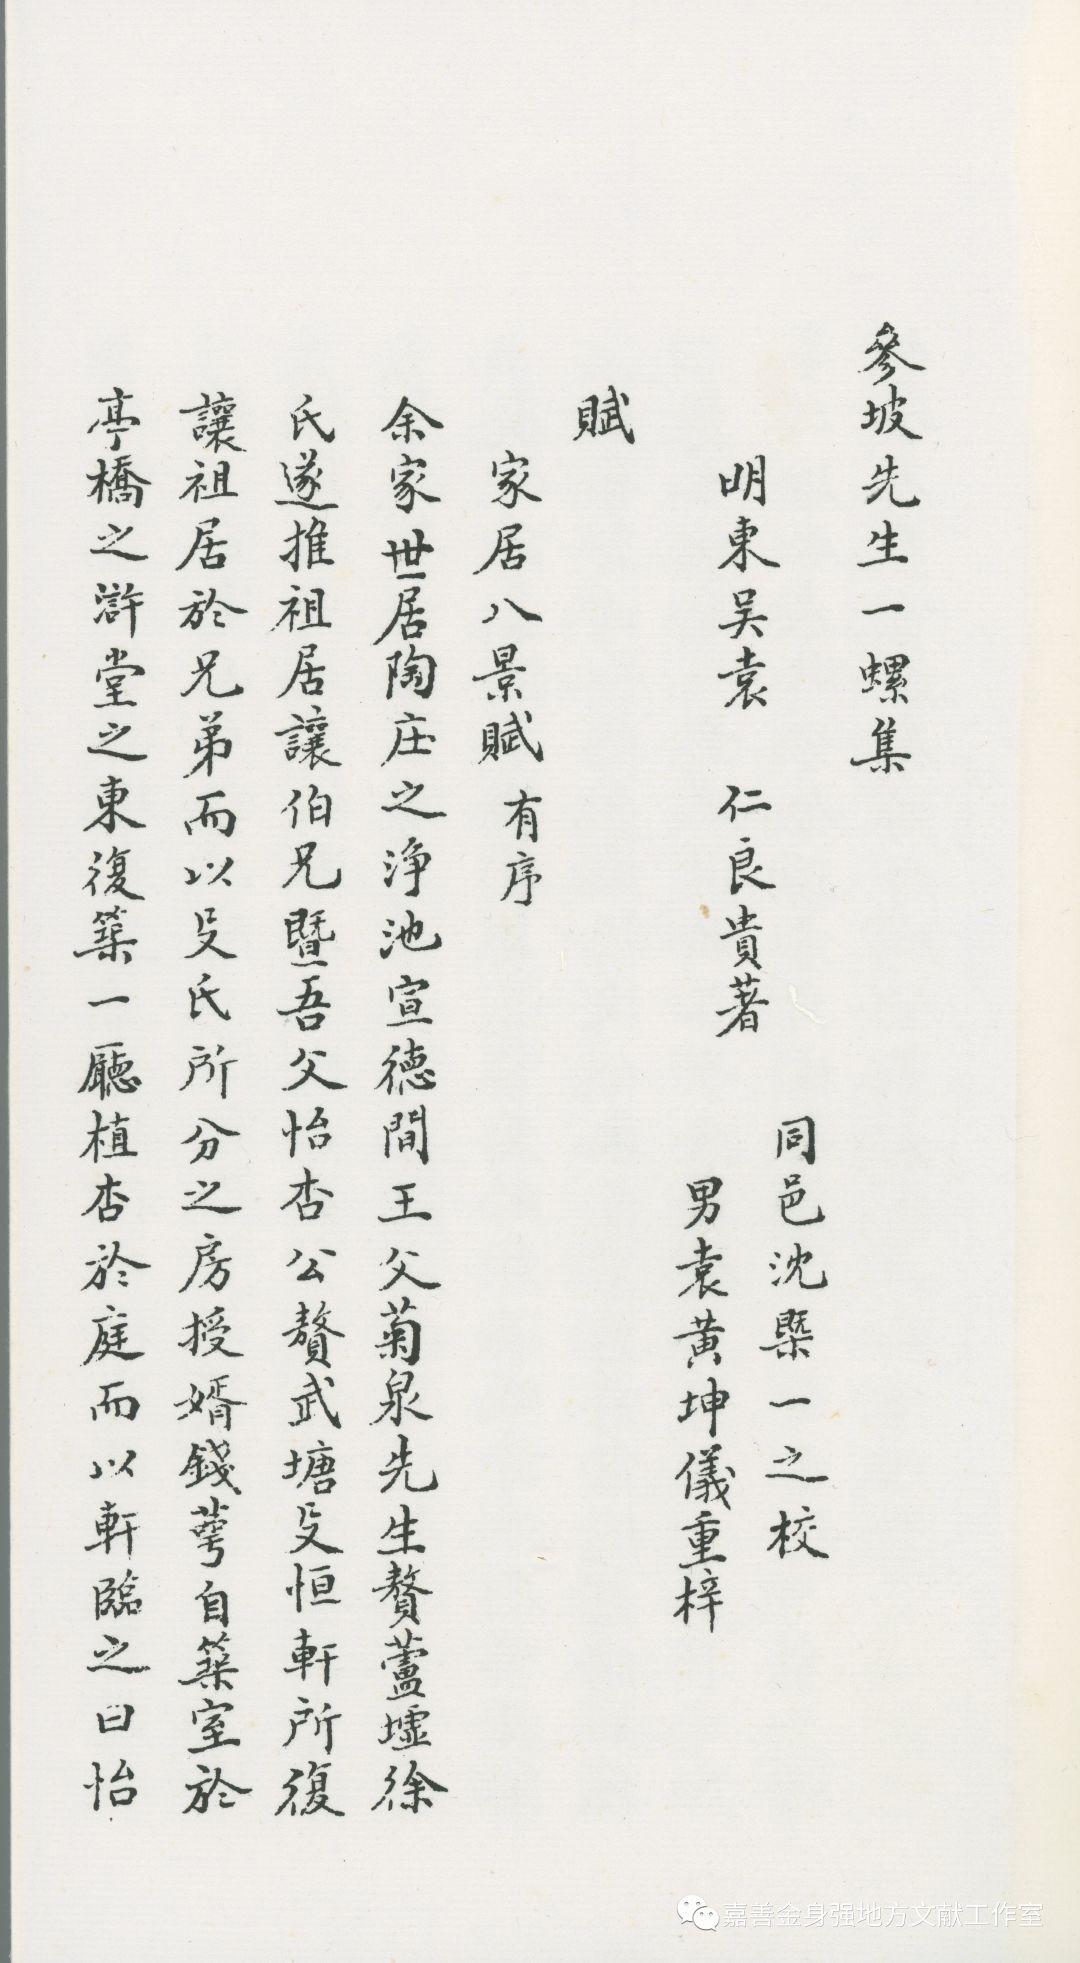 參坡先生一螺集
明東吴袁　仁良貴著
同邑沈槩一之校
男袁黄坤儀重梓
賦
家居八景賦 有序
余家世居陶庄之浄池宣德間王父菊泉先生贅蘆墟徐
氏遂推祖居讓伯兄暨吾父怡杏公贅武塘殳恒軒所復
讓祖居於兄弟而以殳氏所分之房授婿錢萼自築室於
亭橋之滸堂之東復築一廳植杏於庭而以軒臨之曰怡
嘉善金身强地方文献工作室